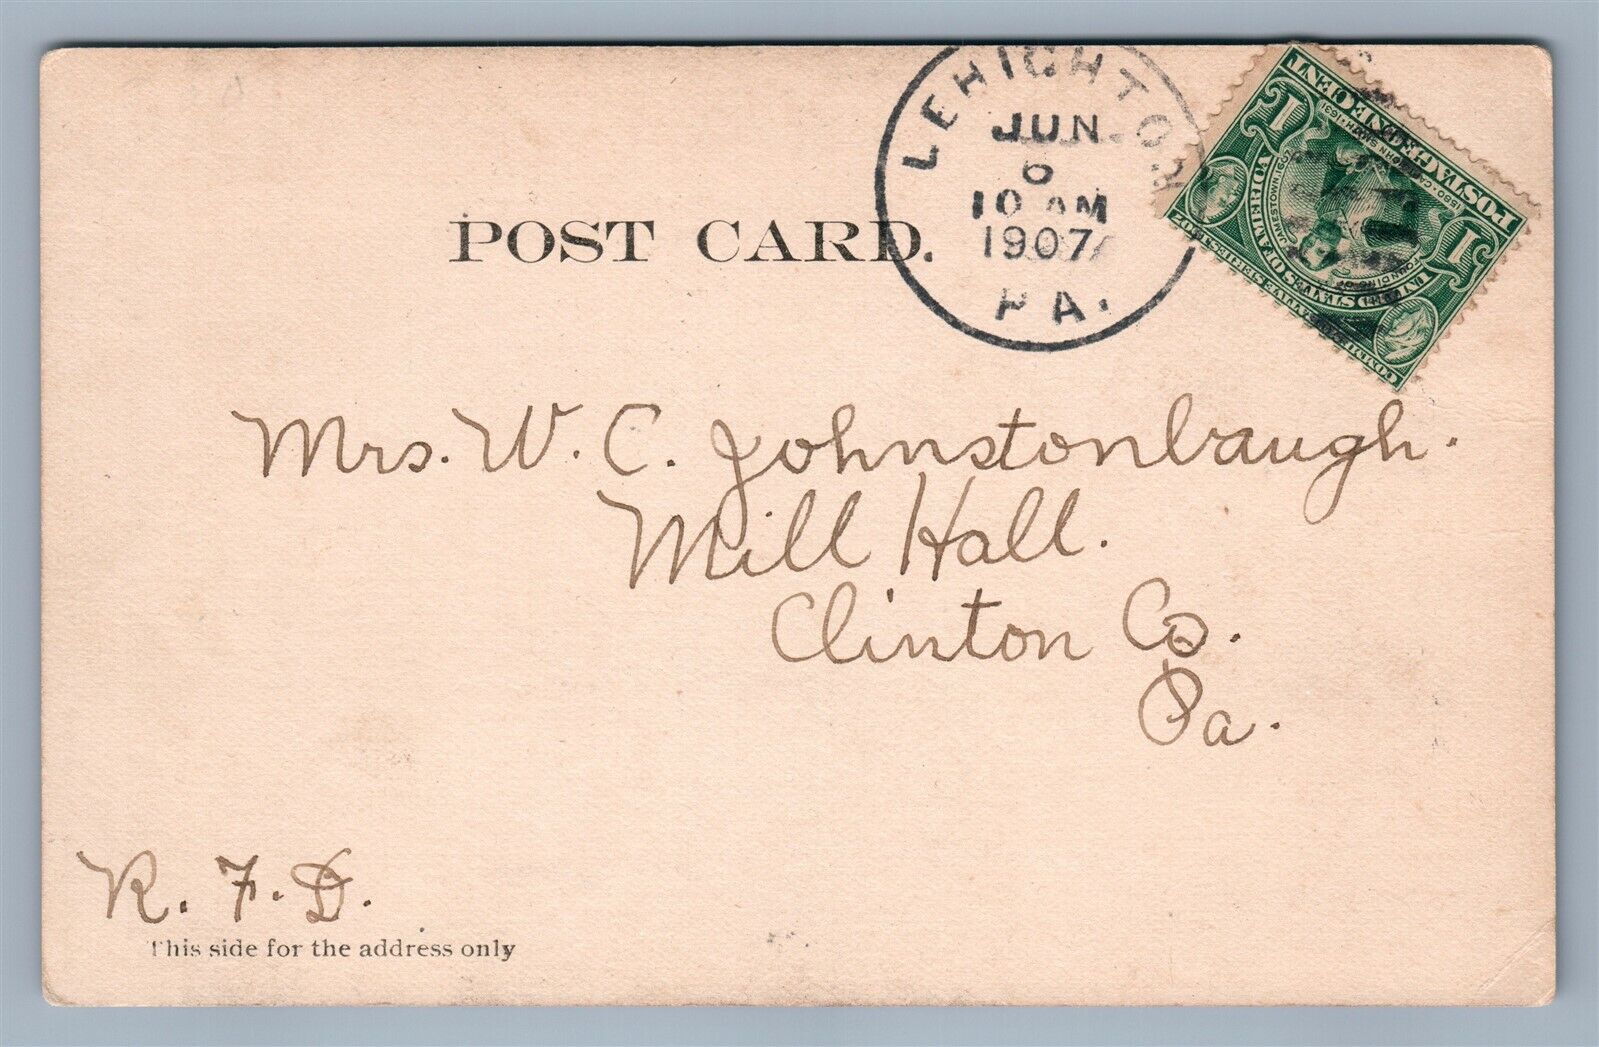 LEHIGHTON
JUN
6
10 AM
1907
PA.
POSTAGE ONE CENT
1 1
FOUNDING OF JAMESTOWN 1607
UNITED STATES OF AMERICA
COMMEMORATIVE SERIES 1907
POST CARD.
Mrs. W. C. Johnstonbaugh.
Mill Hall.
Clinton Co.
Pa.
R. F. D.
This side for the address only